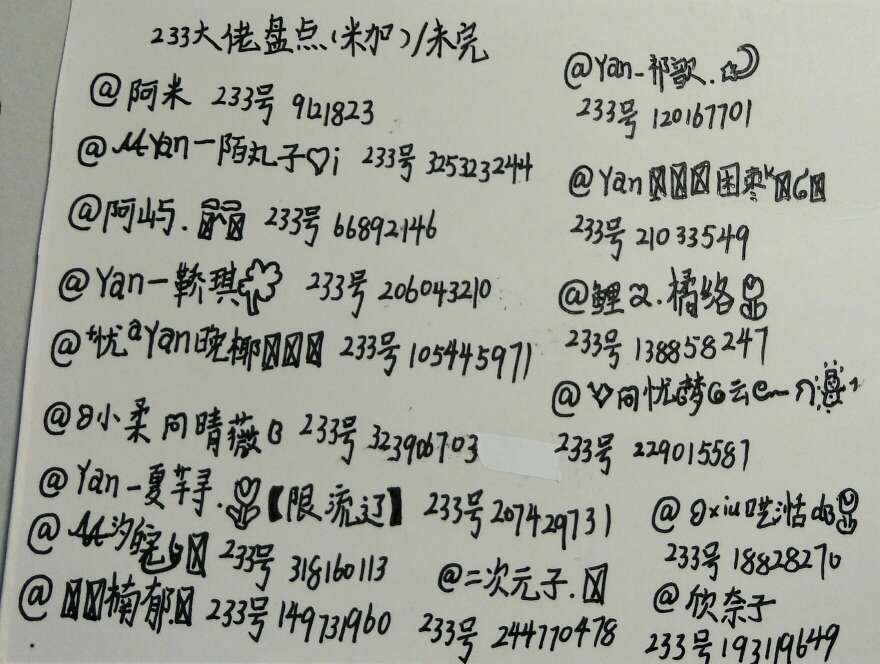 233大佬盘点(米加)/未完
@阿米 233号 9121823
@MYan一陌丸子♡i 233号 325323244
@阿屿. 233号 66892146
@Yan一 琪 233号 206043210
@忧aYan晚椰 233号 105445971
@小柔问晴薇 233号 323906703
@Yan一夏芊寻.【限流辽】 233号 207429731
@ 汐 233号 318160113
@ 楠郁. 233号 149731960
@Yan一祁歌.
233号 120167701
@Yan 困枣
233号 21033549
@鲤 .橘络
233号 138858247
@ 问忧梦 云
233号 229015587
@ xiu
233号 18828270
@二次元子.
233号 244770478
@欣奈子
233号 193119649